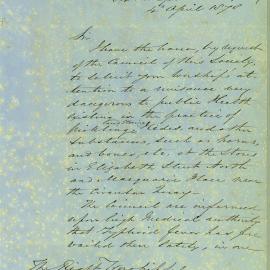 4th April 1878
Sir
I have the honor, by request
of the Council of this Society,
to submit your Worship's at-
tention to a nuisance very
dangerous to public Health
existing in the practice of
Pickling Hides, and other
Substances, such as horns,
and bones, etc. at the Stores
in Elizabeth Street North
and Macquarie Place near
the Circular Quay.
The Council are informed
upon high Medical authority
that Typhoid fever has pre-
vailed there lately, in one
The Right Worshipful